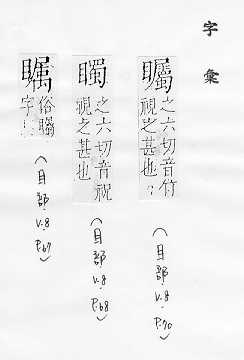 字彙
矚 之六切音竹
視之甚也︰
(目部 V.8 P.70)
矚 之六切音祝
視之甚也
(目部 V.8 P.68)
瞩 俗矚
字︰
(目部 V.8 P.67)